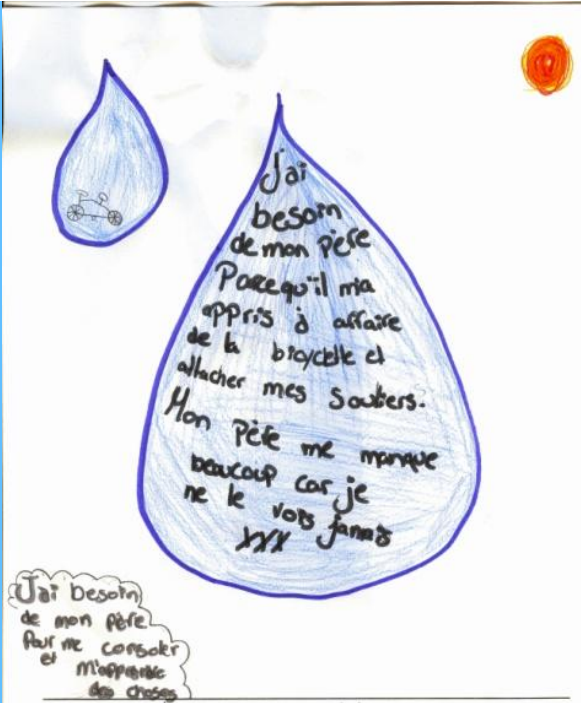 J'ai
besoin
de mon père
Parcequ'il ma
appris à affaire
de la bicyclette et
attacher mes souliers.
Mon père me manque
beaucoup car je
ne le vois jamais
XXX
J'ai besoin
de mon père
Pour me consoler
et m'apprendre
des choses